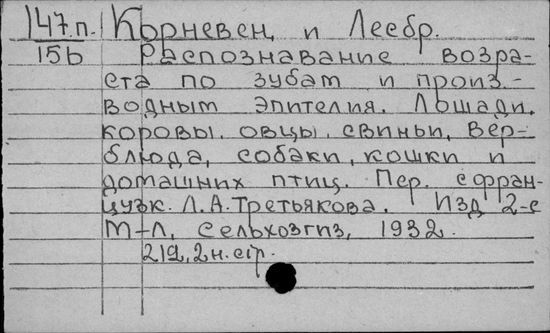 147.п. Корневен, и Леебр.
15Ь Распознавание возра-
ста по зубам и произ.-
водным эпителия. Лошади,
коровы. овцы, свиньи, вер-
блюда, собаки, кошки и
домашних птиц. Пер. с фран-
цузк. Л.А.Третьякова. Изд 2-е
М-Л, Сельхозгиз, 1932.
212, 2н.стр.